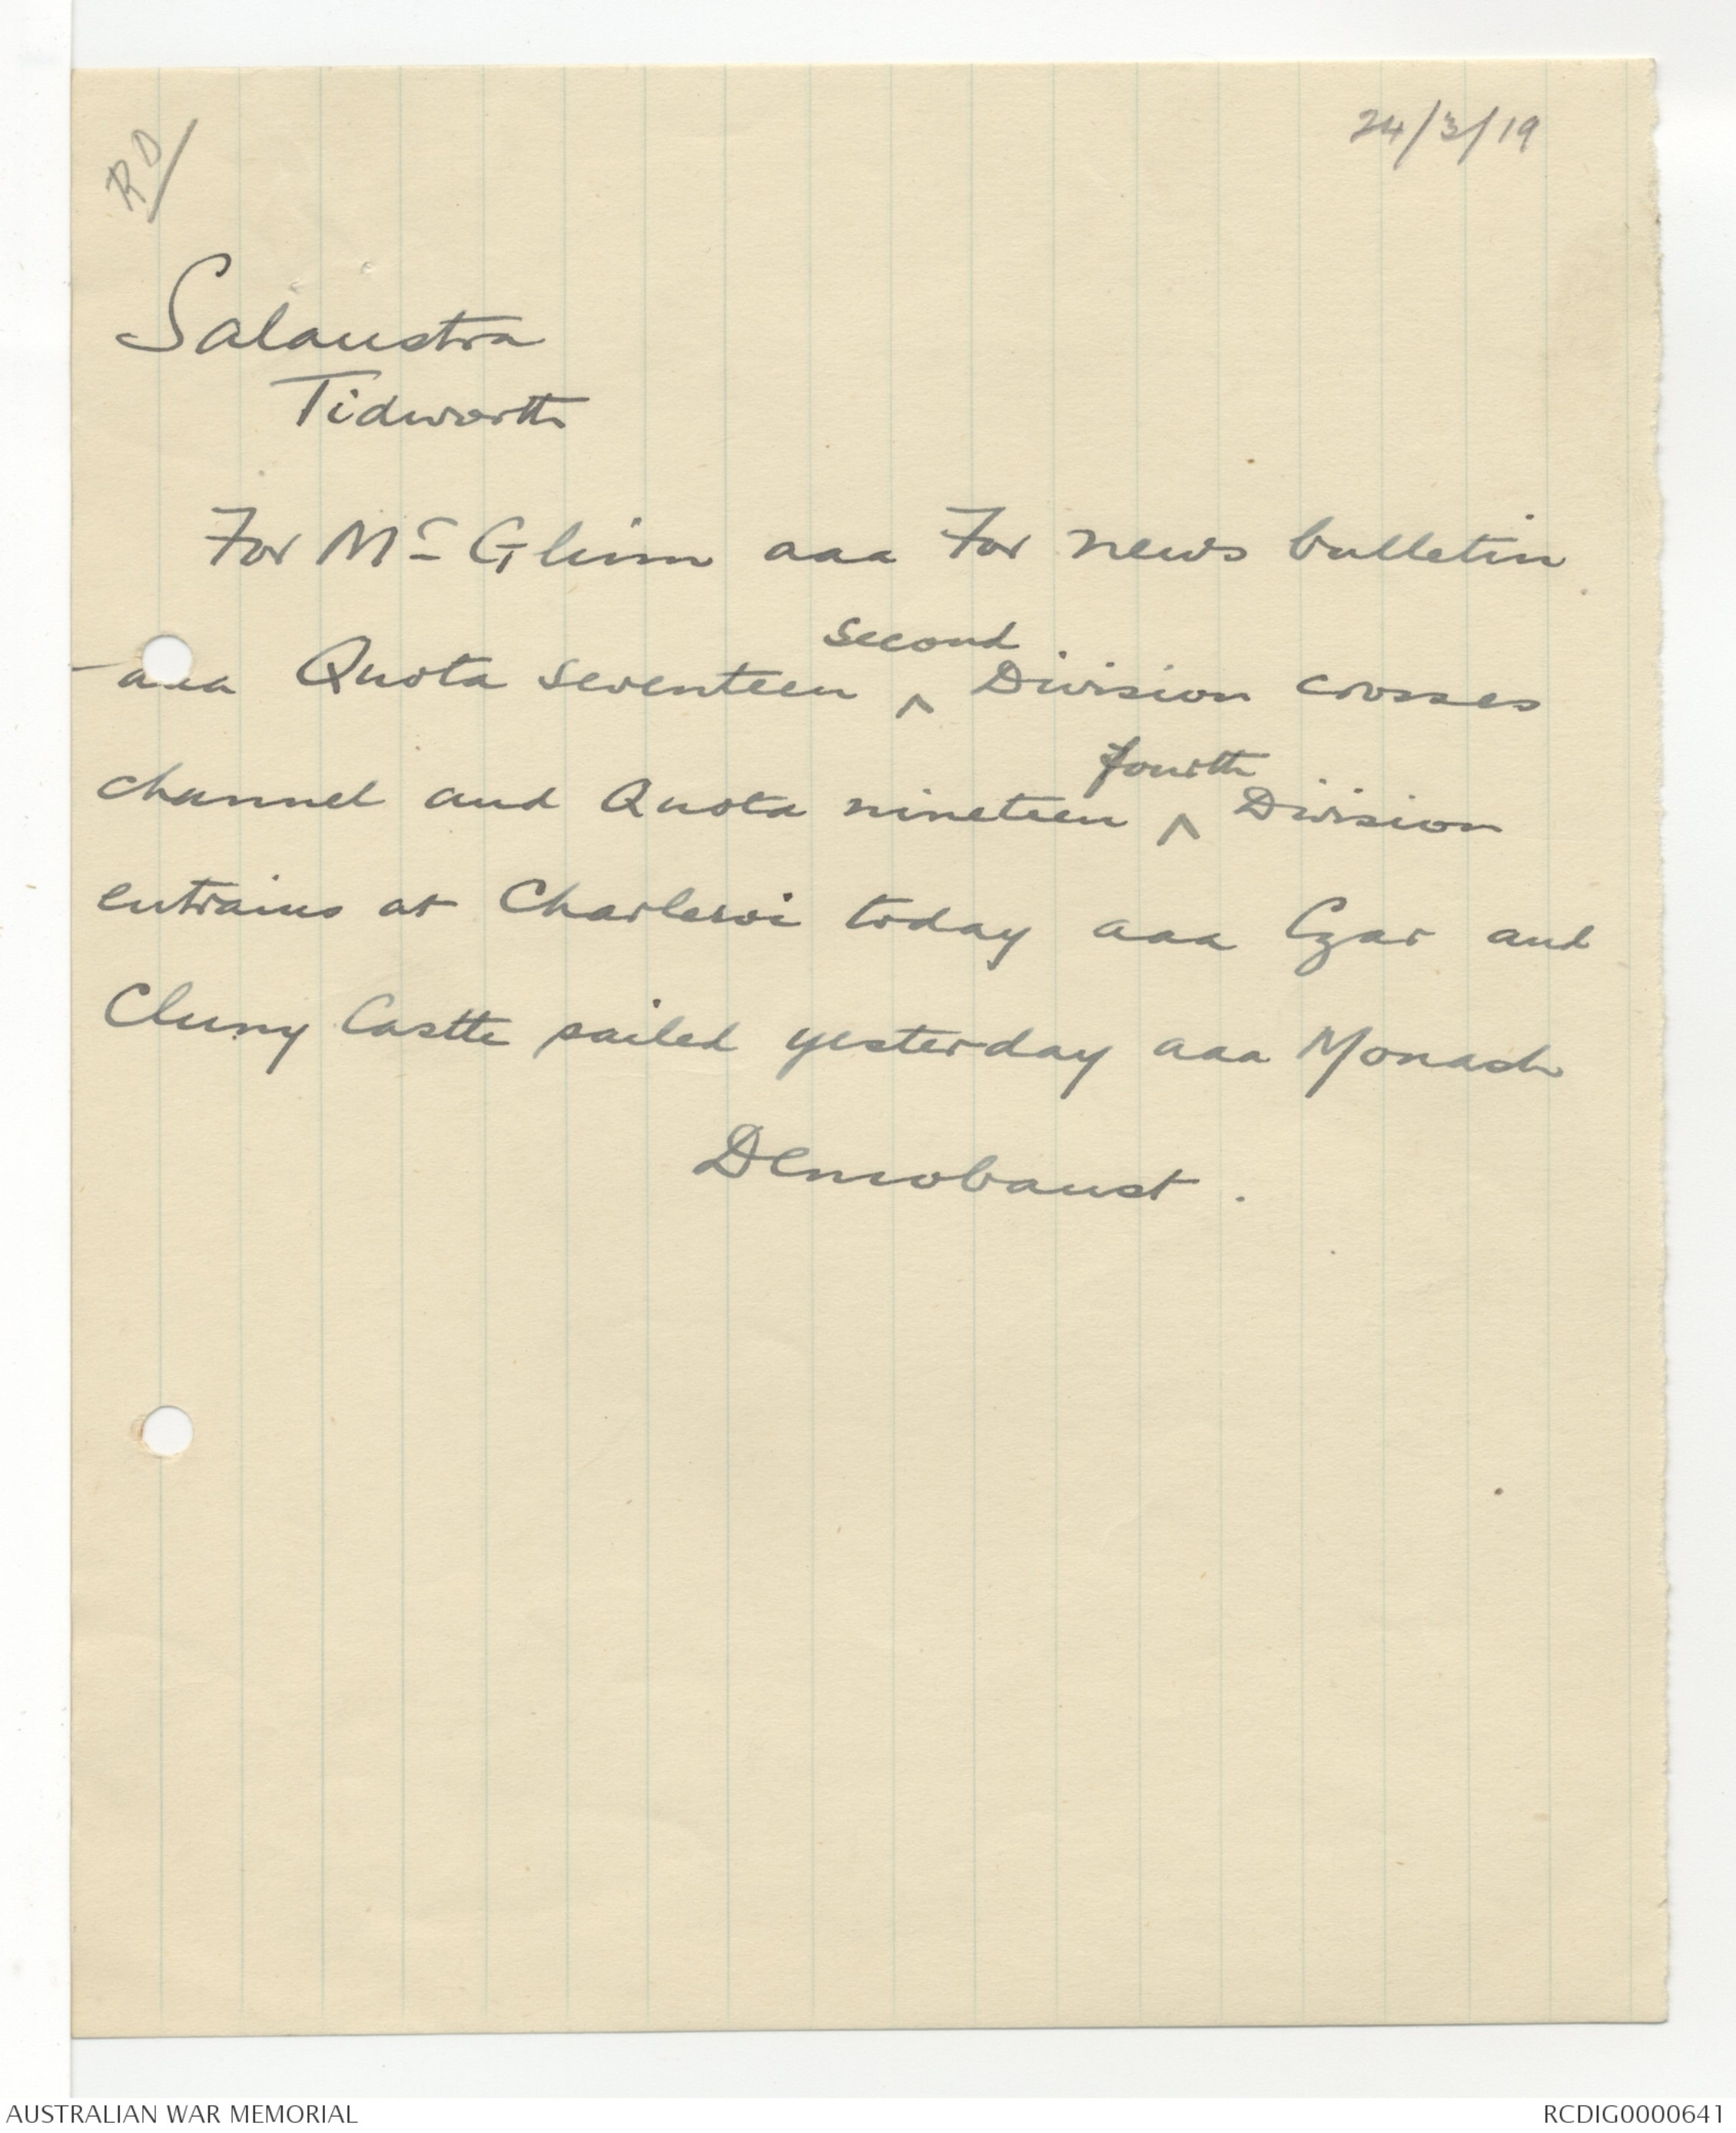 RD/
24/3/19
Salaustra
Tidworth
For McGlinn aaa For news bulletin
- aaa Quota seventeen ^ second Division crosses
channel and Quota nineteen ^ fourth Division
entrains at Charleroi today aaa Czar and
Cluny Castle sailed yesterday aaa Monash
Demobaust.
AUSTRALIAN WAR MEMORIAL
RCDIG0000641